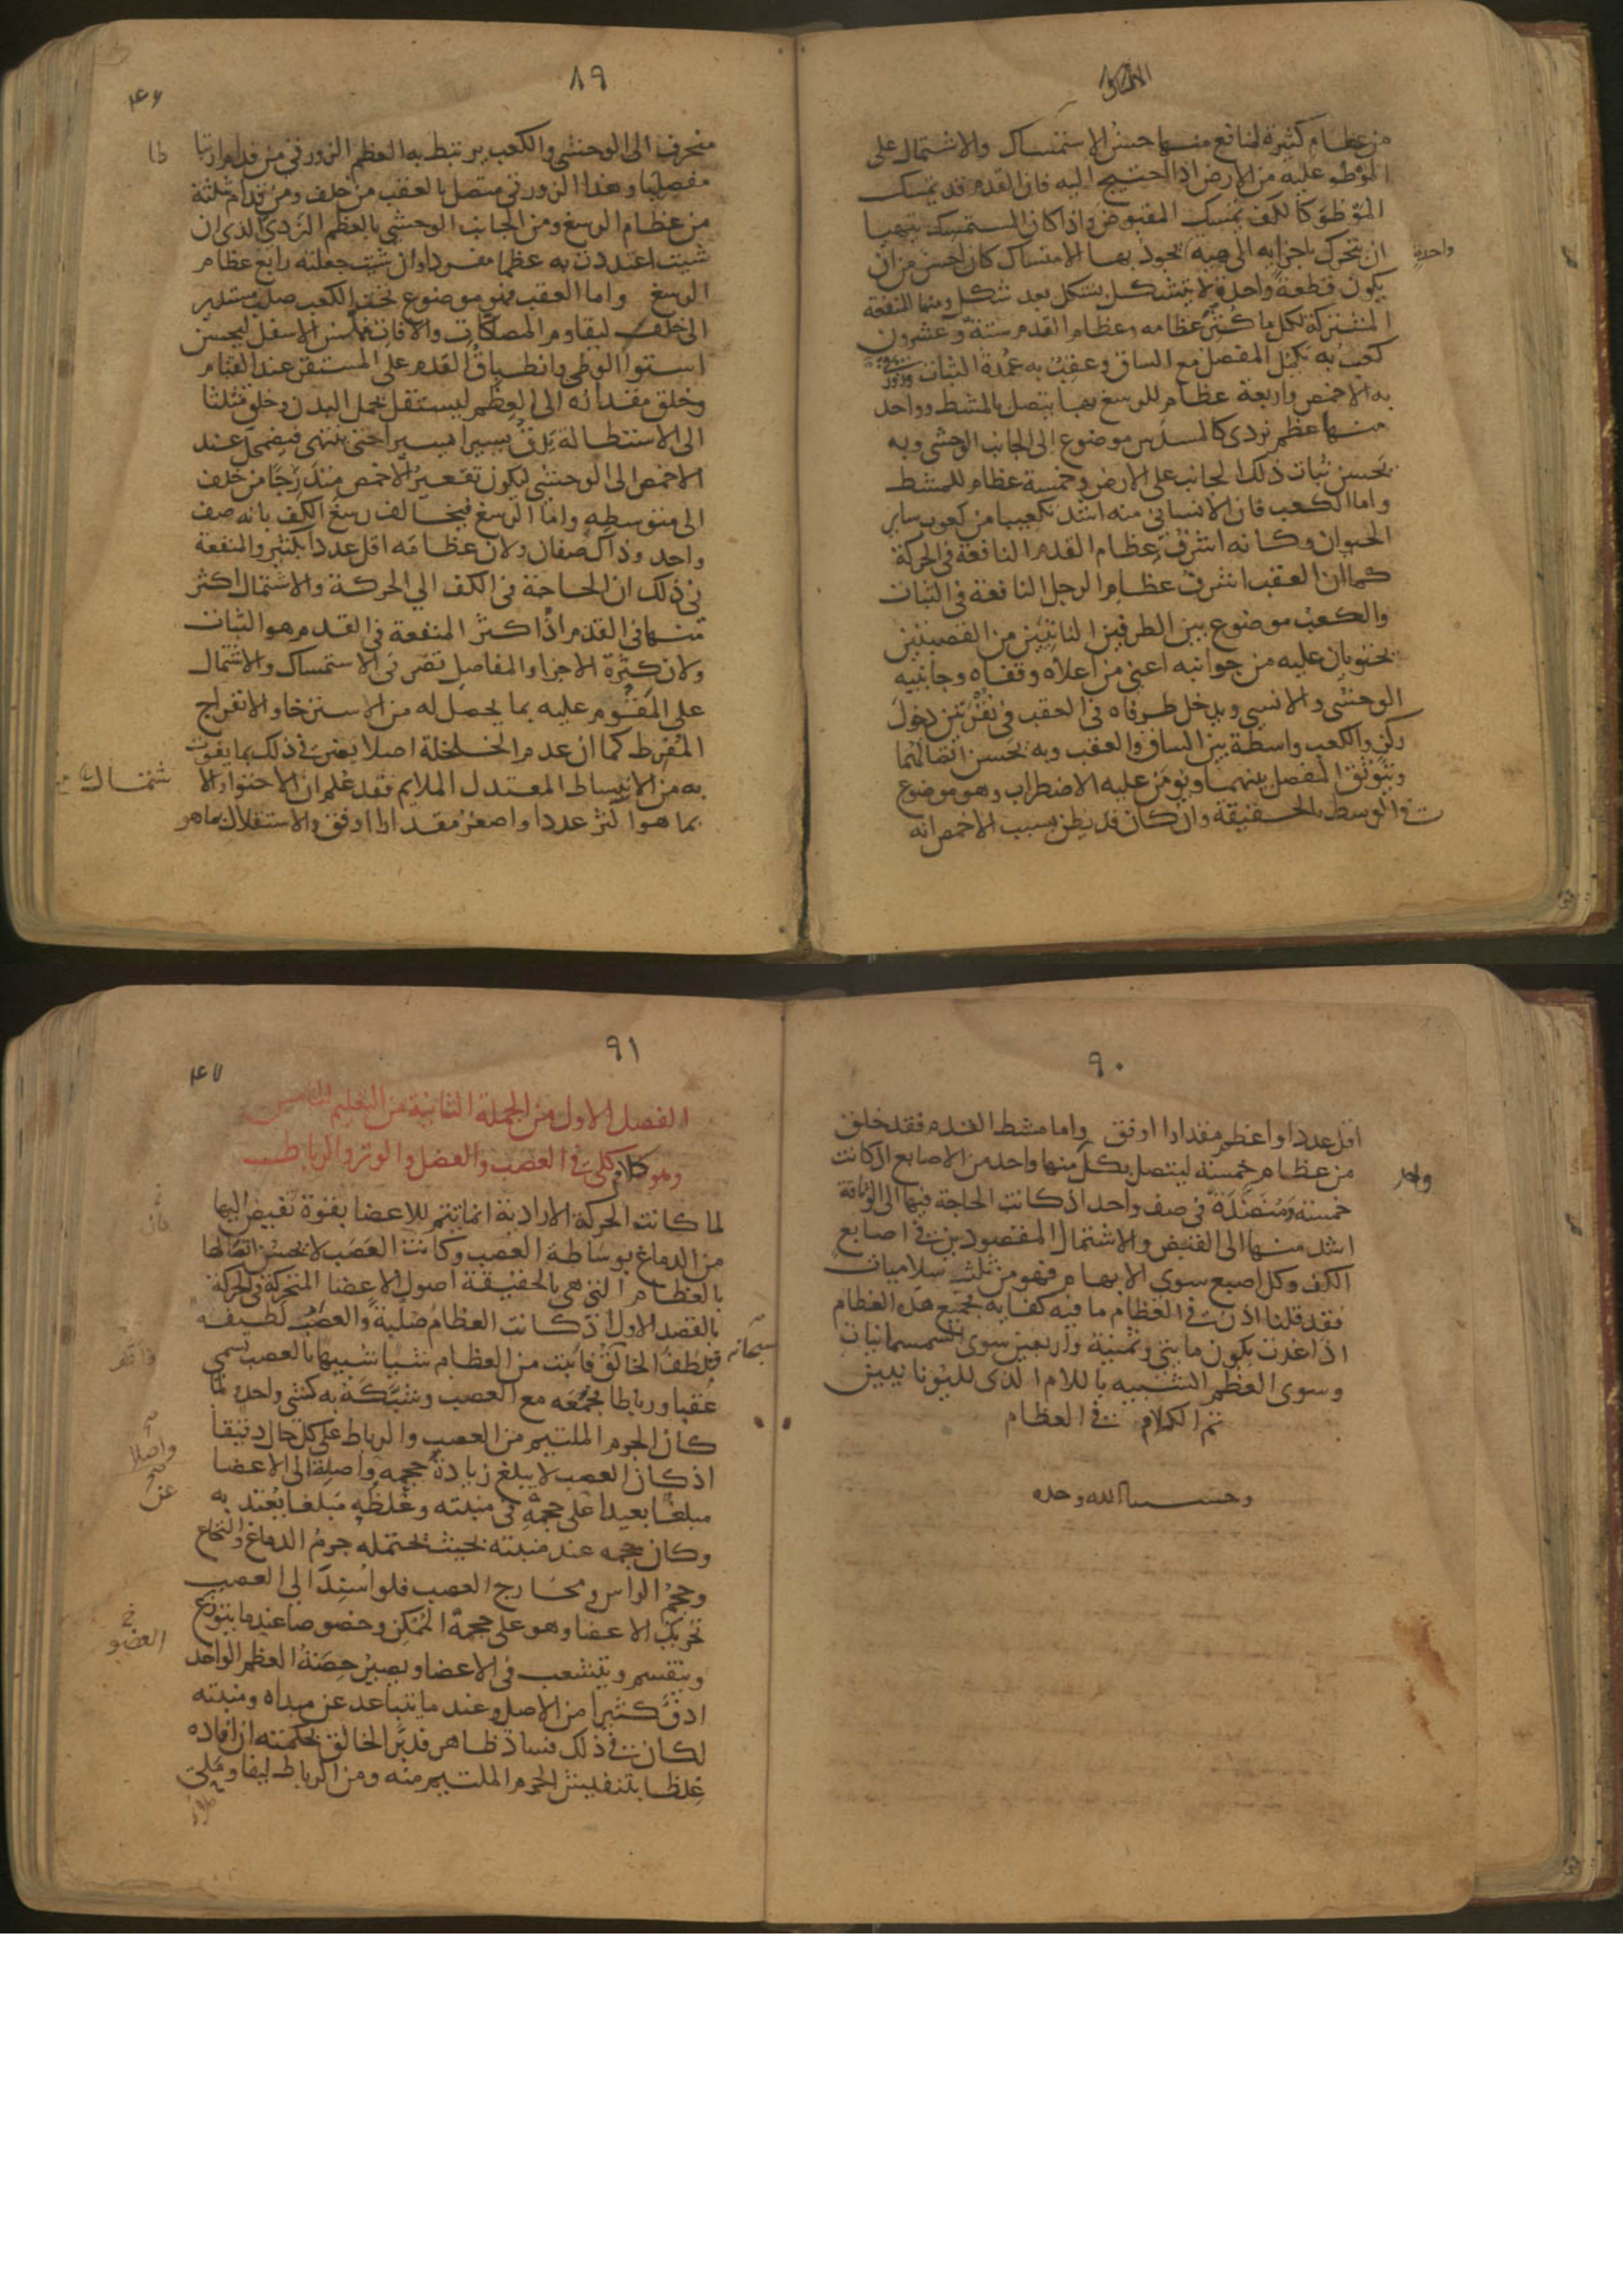 من عظام كثيرة لمنافع منها حسن الاستمساك والاشتمال على
الموطوء عليه من الارض اذا احتيج اليه فان القدم قد يمسك
الموطو كالكف يمسك المقبوض واذا كان المستمسك يتهيا
ان يتحرك باجزايه الى هيه يجود بها الامتساك كان احسن من ان
واحدة
يكون قطعة واحدة لا يتشكل بشكل بعد شكل ومنها المنفعة
المشتركة لكل ما كثر عظامه وعظام القدم ستة وعشرون
كعب به يكمل المفصل مع الساق وعقب به عمدة الثبات
به الاخمص واربعة عظام للرسغ بها يتصل بالمشط وواحد
منها عظم نردى كالمسدس موضوع الى الجانب الوحشى وبه
يحسن ثبات ذلك الجانب على الارض وخمسة عظام للمشط
واما الكعب فان الانسانى منه اشد تكعيبا من كعوب ساير
الحيوان وكانه اشرف عظام القدم النافعة فى الحركة
كما ان العقب اشرف عظام الرجل النافعة فى الثبات
والكعب موضوع بين الطرفين الناتيين من القصبتين
يحتويان عليه من جوانبه اعنى من اعلاه وقفاه وجانبيه
الوحشى والانسى ويدخل طرفاه فى العقب فى نقرتين دخول
ركز والكعب واسطة بين الساق والعقب وبه يحسن اتصالهما
ويتوثق المفصل بينهما ويومن عليه الاضطراب وهو موضوع
فى الوسط بالحقيقة وان كان قد يظن بسبب الاخمص انه
٨٩
٤٦
منحرف الى الوحشى والكعب يرتبط به العظم الزورقى من قدام ارتباطا
مفصليا وهذا الزورقى متصل بالعقب من خلف ومن قدام ثلثة
من عظام الرسغ ومن الجانب الوحشى بالعظم النردى الذى ان
شيت اعتددت به عظما مفردا وان شيت جعلته رابع عظام
الرسغ واما العقب فهو موضوع تحت الكعب صلب مستدير
الى خلف ليقاوم المصاكات والافات مملس الاسفل ليحسن
استوا الوطى وانطباق القدم على المستقر عند القيام
وخلق مقداره الى العظم ليستقل بحمل البدن وخلق مثلثا
الى الاستطالة يدق يسيرا يسيرا حتى ينتهى فيضمحل عند
الاخمص الى الوحشى ليكون تقعير الاخمص متدرجا من خلف
الى متوسطه واما الرسغ فيخالف رسغ الكف بانه صف
واحد وذاك صفان ولان عظامه اقل عددا بكثير والمنفعة
فى ذلك ان الحاجة فى الكف الى الحركة والاشتمال اكثر
منها فى القدم اذ اكثر المنفعة فى القدم هو الثبات
ولان كثرة الاجزا والمفاصل تضر فى الاستمساك والاشتمال
على المقوم عليه بما يحصل له من الاسترخا والانفراج
المفرط كما ان عدم الخلخلة اصلا يضر فى ذلك بما يفوت
به من الانبساط المعتدل الملايم فقد علم ان الاحتوا والا
شتمال
بما هو اكثر عددا واصغر مقدارا اوفق والاستقلال بما هو
٩٠
اقل عددا واعظم مقدارا اوفق واما مشط القدم فقد خلق
من عظام خمسة ليتصل بكل منها واحد من الاصابع اذ كانت
واحد
خمسة ومنضدة فى صف واحد اذ كانت الحاجة فيها الى الوثاقة
اشد منها الى القبض والاشتمال المقصودين فى اصابع
الكف وكل اصبع سوى الابهام فهو من ثلث سلاميات
فقد قلنا اذن فى العظام ما فيه كفاية فجميع هذه العظام
اذا عدت يكون مايتى وثمنية واربعين سوى السمسمانيات
وسوى العظم الشبيه باللام الذى لليونانيين
تم الكلام فى العظام
وحسبنا الله وحده
٩١
٤٧
الفصل الاول من الجملة الثانية من التعليم الخامس
وهو كلام كلى فى العصب والعضل والوتر والرباط
لما كانت الحركة الارادية انما تتم للاعضا بقوة تفيض اليها
من الدماغ بوساطة العصب وكانت العصب لا يحسن اتصالها
بالعظام التى هى بالحقيقة اصول الاعضا المتحركة فى الحركة
بالقصد الاول اذ كانت العظام صلبة والعصب لطيفه
سبحانه
تلطف الخالق فانبت من العظام شيا شبيها بالعصب يسمى
عقبا ورباطا فجمعه مع العصب وشبكه به كشى واحد ولما
كان الجرم الملتيم من العصب والرباط على كل حال دقيقا
اذ كان العصب لا يبلغ زيادة حجمه واصلة الى الاعضا
واصلا
مبلغا بعيدا على حجمه فى منبته وغلظه مبلغا يعتد به
عن
وكان حجمه عند منبته بحيث يحتمله جرم الدماغ والنخاع
وحجم الراس ومخارج العصب فلو اسند الى العصب
تحريك الاعضا وهو على حجمه الممكن وخصوصا عندما يتوزع
العضو
وينقسم ويتشعب فى الاعضا ويصير حصة العظم الواحد
ادق كثيرا من الاصل وعند ما يتباعد عن مبداه ومنبته
لكان فى ذلك فساد ظاهر فدبر الخالق بحكمته ان افاده
غلظا بتنفيش الجرم الملتيم منه ومن الرباط ليفا وملى